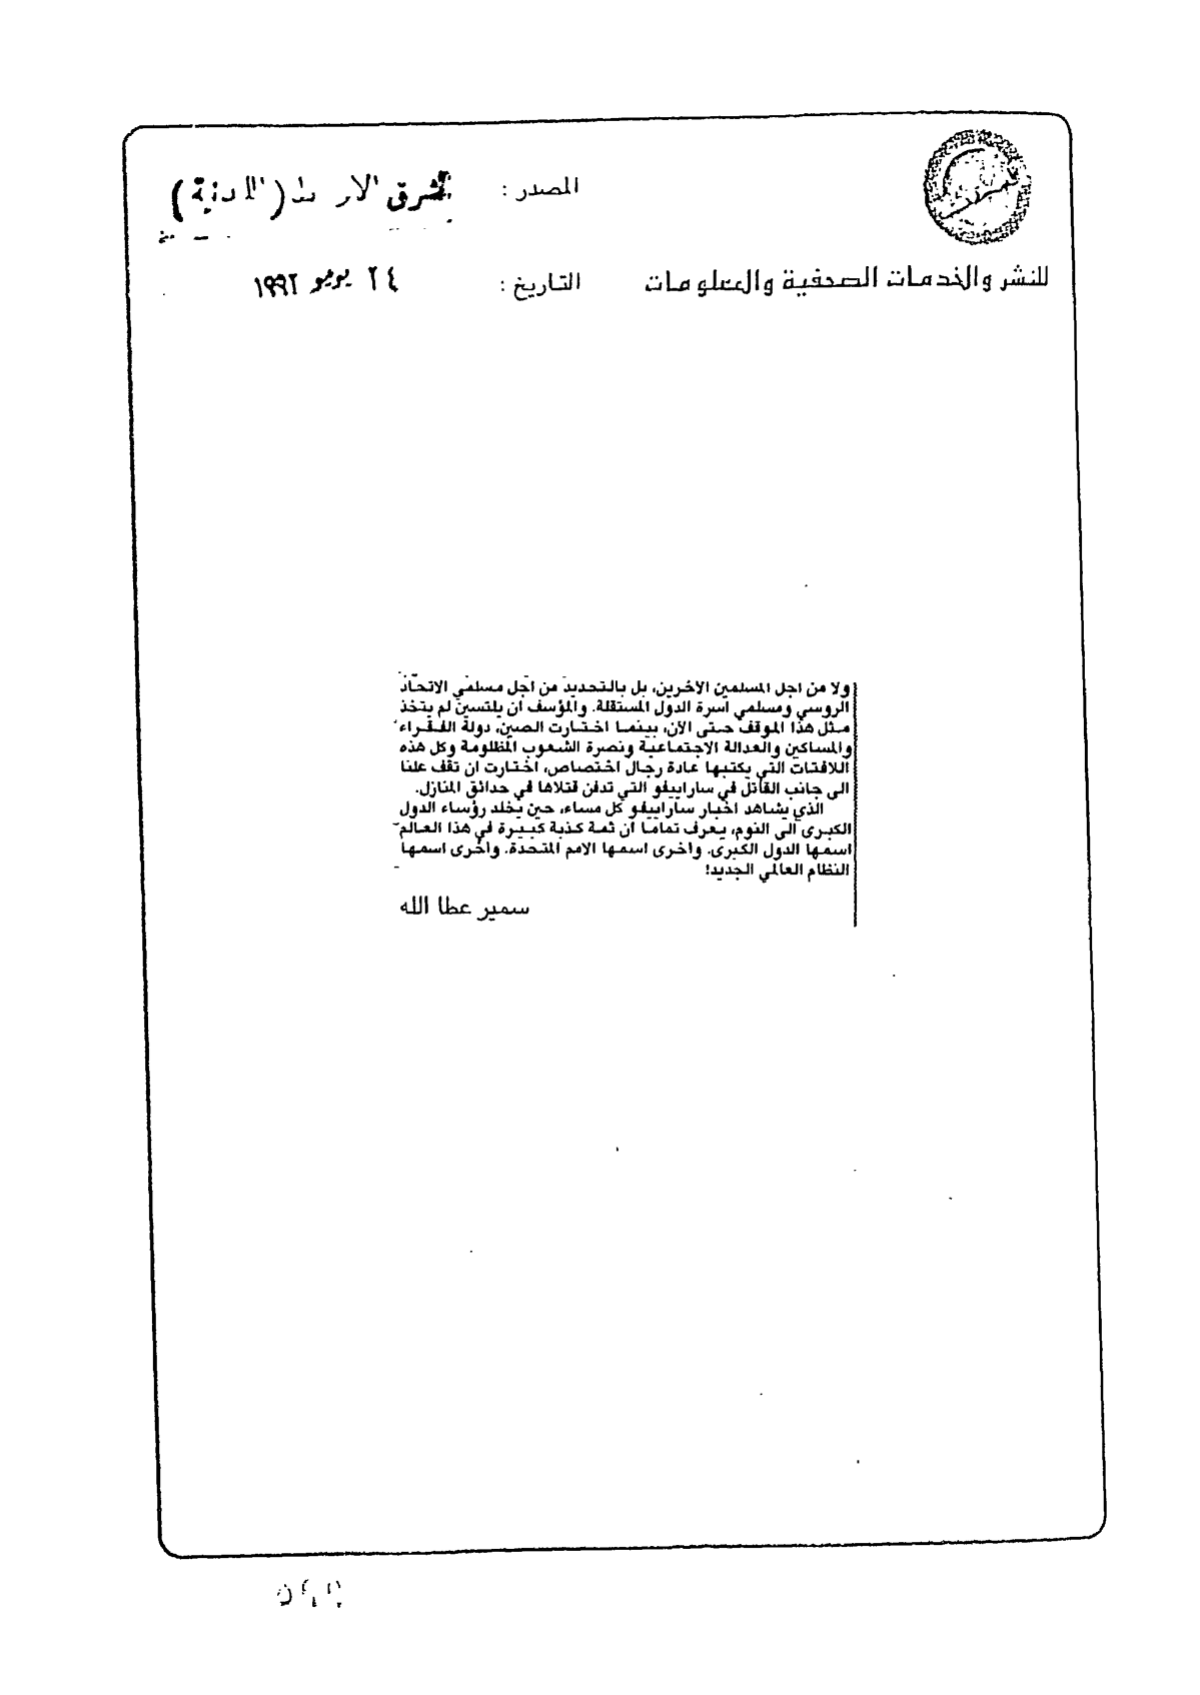 المصدر :
الشرق
للنشر والخدمات الصحفية والمعلومات
التاريخ :
٢٤ يونيو ١٩٩٢
ولا من اجل المسلمين الآخرين، بل بالتحديد من اجل مسلمي الاتحاد
الروسي ومسلمي اسرة الدول المستقلة. والمؤسف ان يلتسين لم يتخذ
مثل هذا الموقف حتى الآن، بينما اختارت الصين، دولة الفقراء
والمساكين والعدالة الاجتماعية ونصرة الشعوب المظلومة وكل هذه
اللافتات التي يكتبها عادة رجال اختصاص، اختارت ان تقف علنا
الى جانب القاتل في ساراييفو التي تدفن قتلاها في حدائق المنازل.
الذي يشاهد اخبار ساراييفو كل مساء، حين يخلد رؤساء الدول
الكبرى الى النوم، يعرف تماما ان ثمة كذبة كبيرة في هذا العالم
اسمها الدول الكبرى. واخرى اسمها الامم المتحدة. واخرى اسمها
النظام العالمي الجديد!
سمير عطا الله